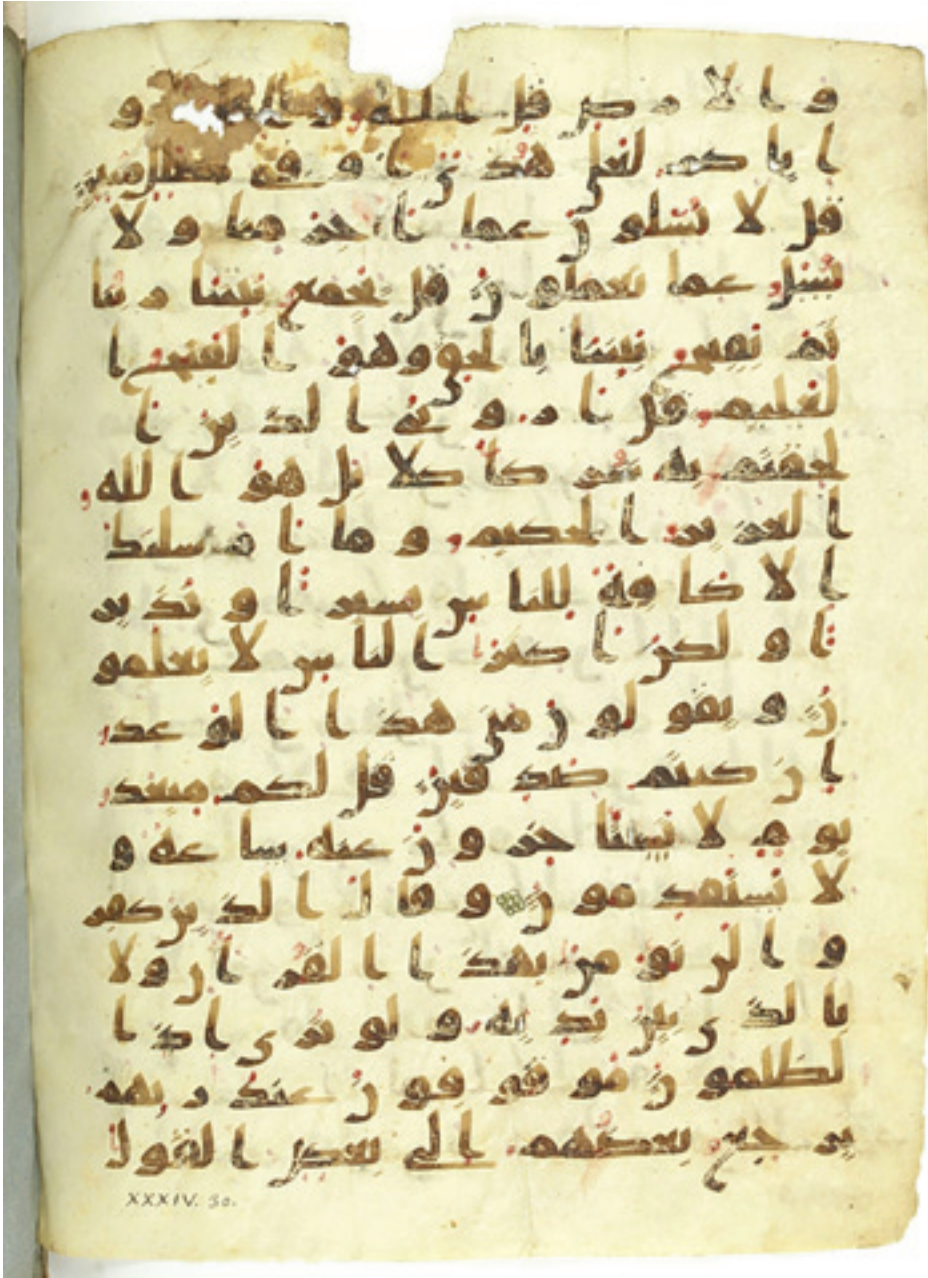 والارض قل الله وانا او
اياكم لعلى هدى او في ضلل مبين
قل لا تسلون عما اجرمنا ولا
نسل عما تعملون قل يجمع بيننا ربنا
ثم يفتح بيننا بالحق وهو الفتح ا
لعليم قل اروني الذين ا
لحقتم به شركا كلا بل هو الله
العزيز الحكيم وما ارسلنك
الا كافة للناس بشيرا ونذير
ا ولكن اكثر الناس لا يعلمو
ن ويقولون متى هذا الوعد
ان كنتم صدقين قل لكم ميعد
يوم لا تستاخرون عنه ساعة و
لا تستقدمون وقال الذين كفر
وا لن نومن بهذا القران ولا
بالذي بين يديه ولو ترى اذ ا
لظلمون موقوفون عند ربهم
يرجع بعضهم الى بعض القول
XXXIV. 30.